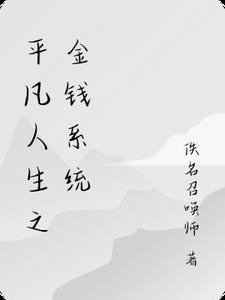 平凡人生之
金钱系统
佚名召唤师 著